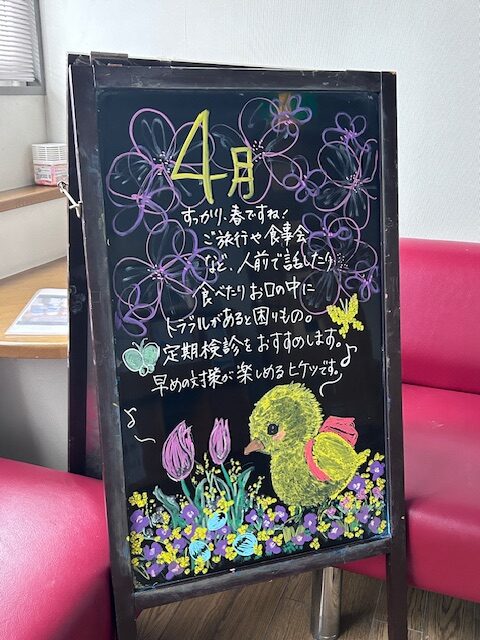 4月
すっかり、春ですね！
ご旅行や食事会
など、人前で話したり
食べたりお口の中に
トラブルがあると困りもの。
定期検診をおすすめします。
早めの対策が楽しめるヒケツです。